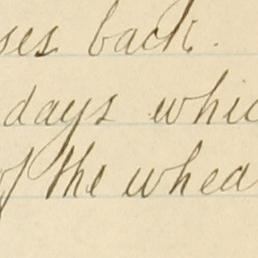 ses back.
days whic
of the whea